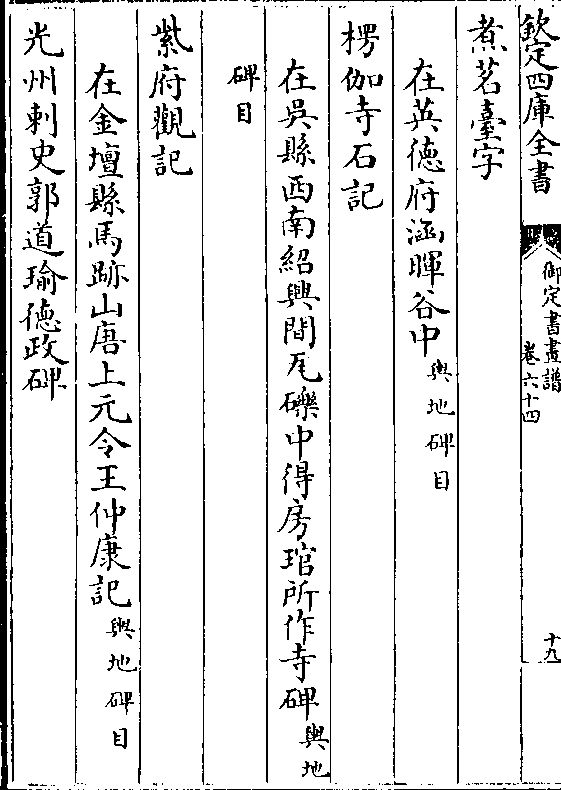 欽定四庫全書
御定書畫譜
卷六十四
十九
煮茗臺字
在英德府涵暉谷中輿地碑目
楞伽寺石記
在吳縣西南紹興間瓦礫中得房琯所作寺碑輿地
碑目
紫府觀記
在金壇縣馬跡山唐上元令王仲康記輿地碑目
光州刺史郭道瑜德政碑